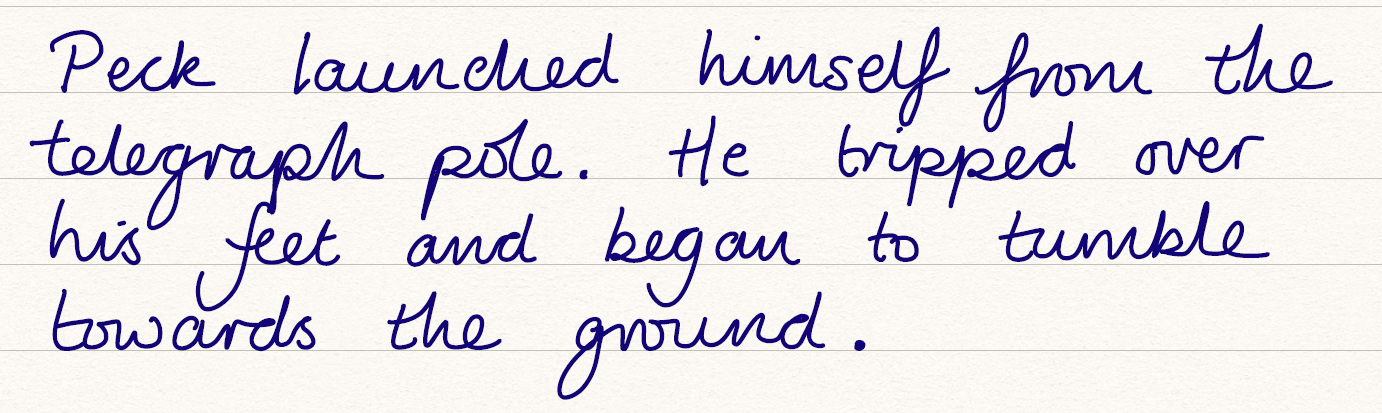 Peck launched himself from the
telegraph pole. He tripped over
his feet and began to tumble
towards the ground.